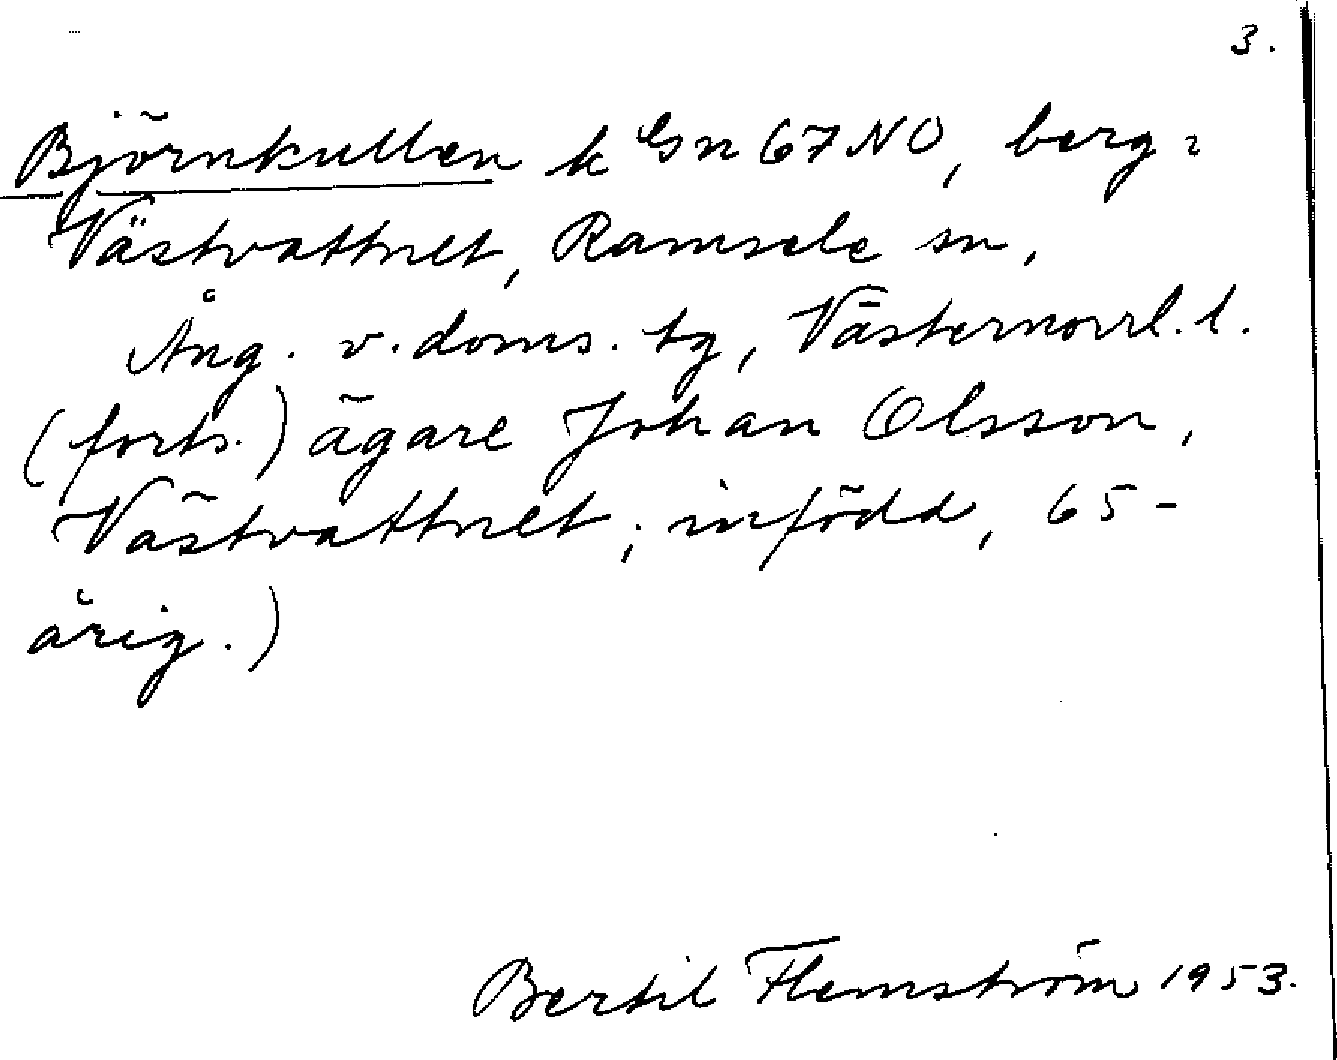 3.
Björnkullen k Gn 67 NO, berg:
Västvattnet, Ramsele sn,
Ång. v. doms. tg, Västernorrl. l.
(forts.) ägare Johan Olsson,
Västvattnet; infödd, 65-
årig.)
Bertil Flemström 1953.